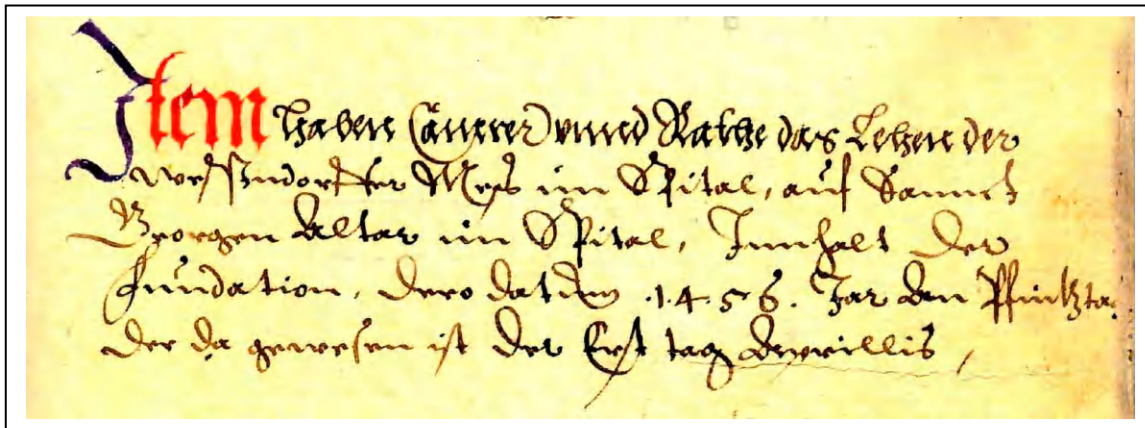 Item haben Camerer vnnd Rathe das Lehen der
Mess im Spital, auf Sannct
Georgen Altar im Spital, Innhalt der
Fundation, dero datum .1.4.5.6. Jar am Pfintzta
der da gewesen ist der Erst tag Apprillis,